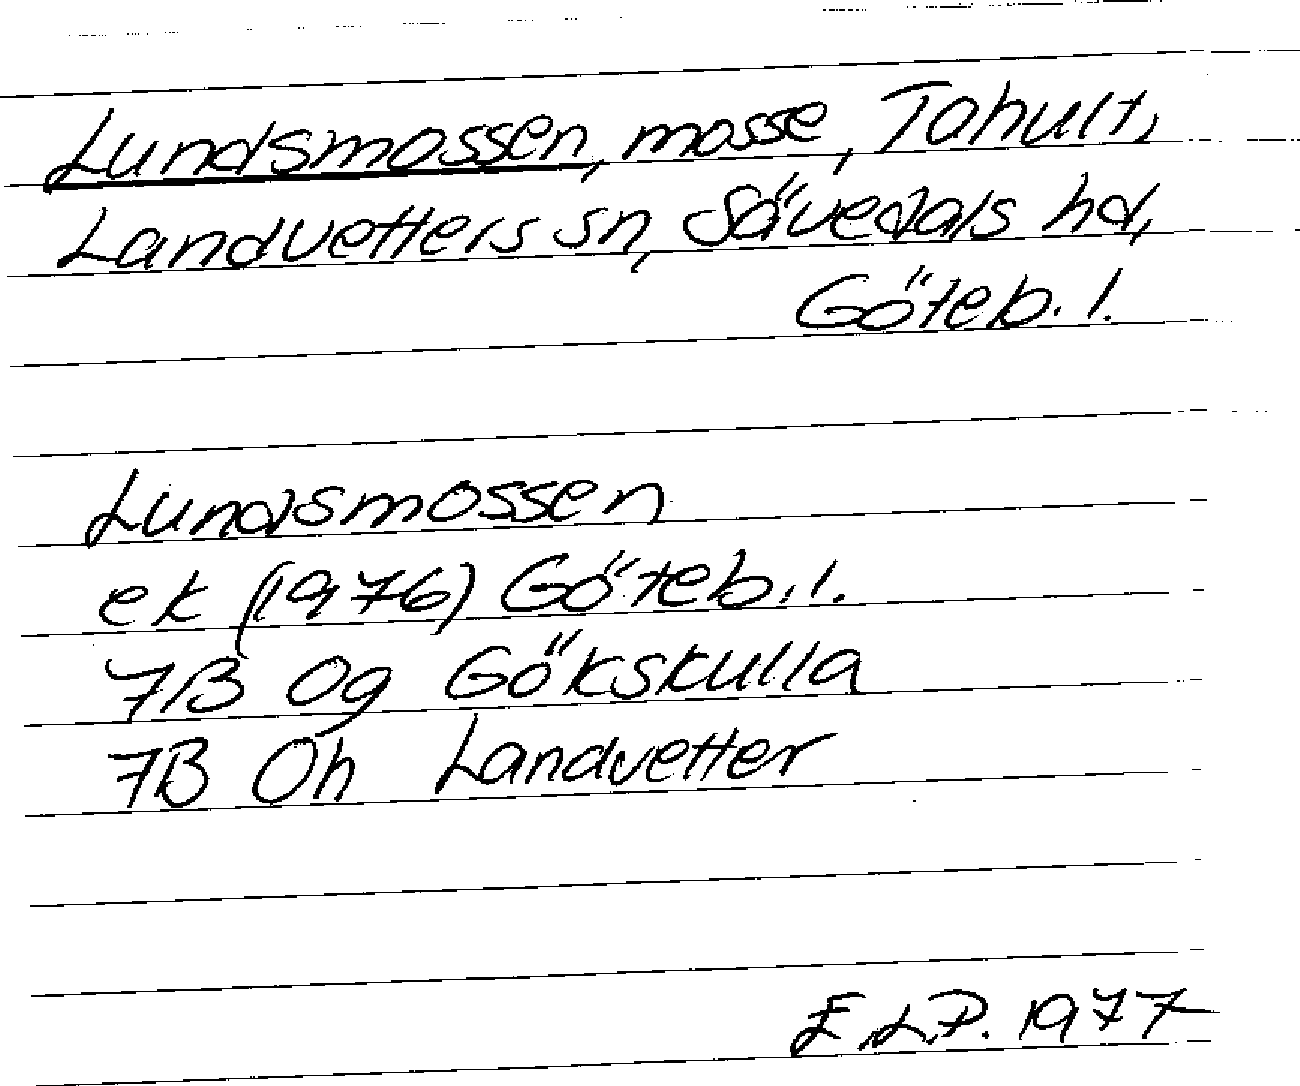 Lundsmossen, mosse, Tahult,
Landvetters sn, Sävedals hd,
Göteb. l.
Lundsmossen
ek (1976) Göteb. l.
7B 0g Gökskulla
7B 0h Landvetter
E.L.P. 1977